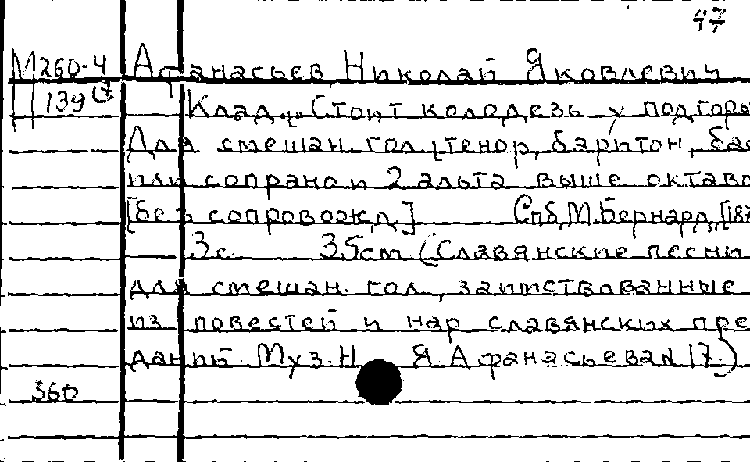 47
М260-4 Афанасьев Николай Яковлевич
139 Клад. "Стоит колодезь у подгоры
Для смешан. гол. (тенор, баритон, бас
или сопрано и 2 альта выше октаво
[без сопровожд.] Спб, М. Бернард, [187
3 с. 35 см (Славянские песни
для смешан. гол., заимствованные
из повестей и нар славянских пре
даний. Муз. Н. Я. Афанасьева N 17.)
360